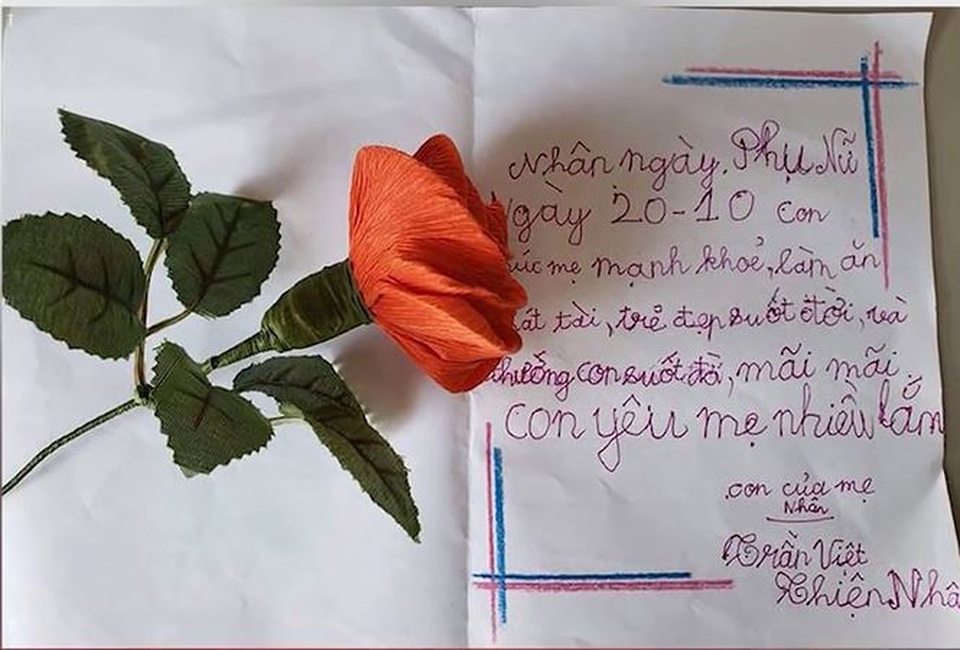 Nhân ngày. Phụ Nữ
Ngày 20-10 con
úc mẹ mạnh khoẻ, làm ăn
ất tài, trẻ đẹp suốt đời, và
thưởng con suốt đời, mãi mãi.
Con yêu mẹ nhiều lắm
con của mẹ
Nhân
Trần Việt
Thiện Nhâ